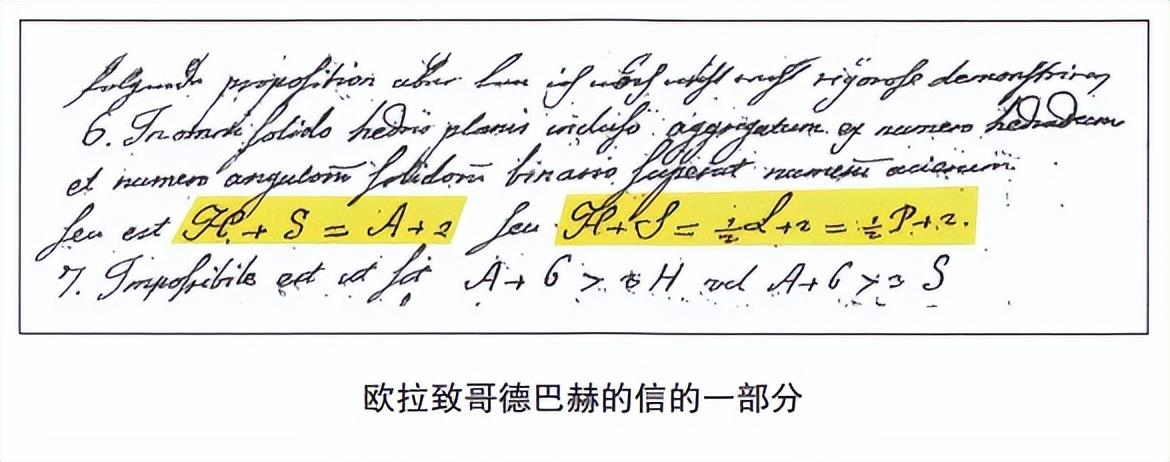 folgende proposition aber kan ich noch nicht recht rigorose demonstriren
6. In omni solido hedris planis incluso aggregatum ex numero hedrarum
et numero angulorū solidorū binario superat numerū acierum.
seu est H + S = A + 2 seu H + S = ½ L + 2 = ½ P + 2.
7. Impossibile est ut sit A + 6 > 3 H vel A + 6 > 3 S
欧拉致哥德巴赫的信的一部分